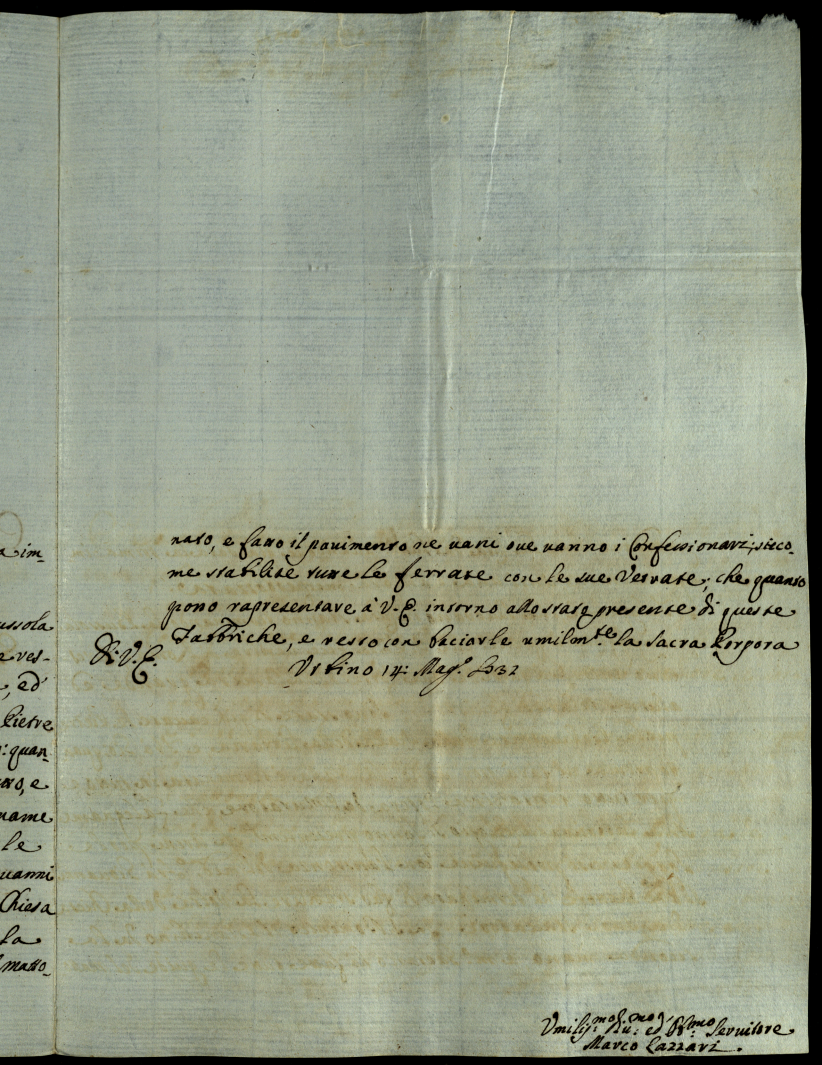 a im-
ussola
e ves-
, ed
Pietre
: quan-
tro, e
name
le
uanni
Chiesa
la
matto-
nato, e fatto il pauimento ne uani oue uanno i Confessionarj; sicco-
me stabilite tutte le ferrate con le sue Vetrate; che quanto
pono rapresentare à V. E. intorno allo stato presente di queste
Fabbriche, e resto con baciarle umilm.te la Sacra Porpora
Di V. E.
Urbino 14: Mag.o 1732
Umiliss.mo Diu.mo ed Obb.mo Seruitore
Marco Lazzari.